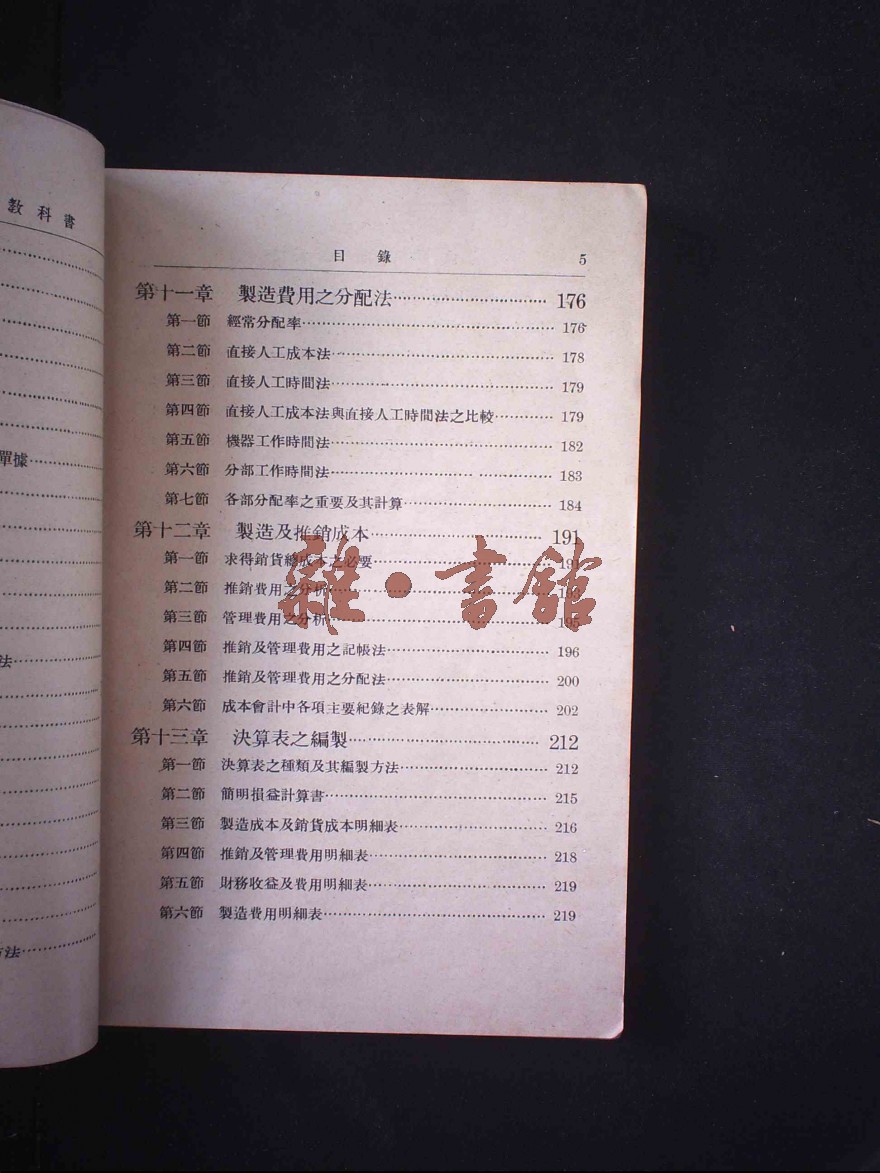 教科書
單據
法
方法
目錄 5
第十一章 製造費用之分配法 176
第一節 經常分配率 176
第二節 直接人工成本法 178
第三節 直接人工時間法 179
第四節 直接人工成本法與直接人工時間法之比較 179
第五節 機器工作時間法 182
第六節 分部工作時間法 183
第七節 各部分配率之重要及其計算 184
第十二章 製造及推銷成本 191
第一節 求得銷貨總成本之必要 191
第二節 推銷費用之分析 193
第三節 管理費用之分析 195
第四節 推銷及管理費用之記帳法 196
第五節 推銷及管理費用之分配法 200
第六節 成本會計中各項主要紀錄之表解 202
第十三章 決算表之編製 212
第一節 決算表之種類及其編製方法 212
第二節 簡明損益計算書 215
第三節 製造成本及銷貨成本明細表 216
第四節 推銷及管理費用明細表 218
第五節 財務收益及費用明細表 219
第六節 製造費用明細表 219
雜·書館